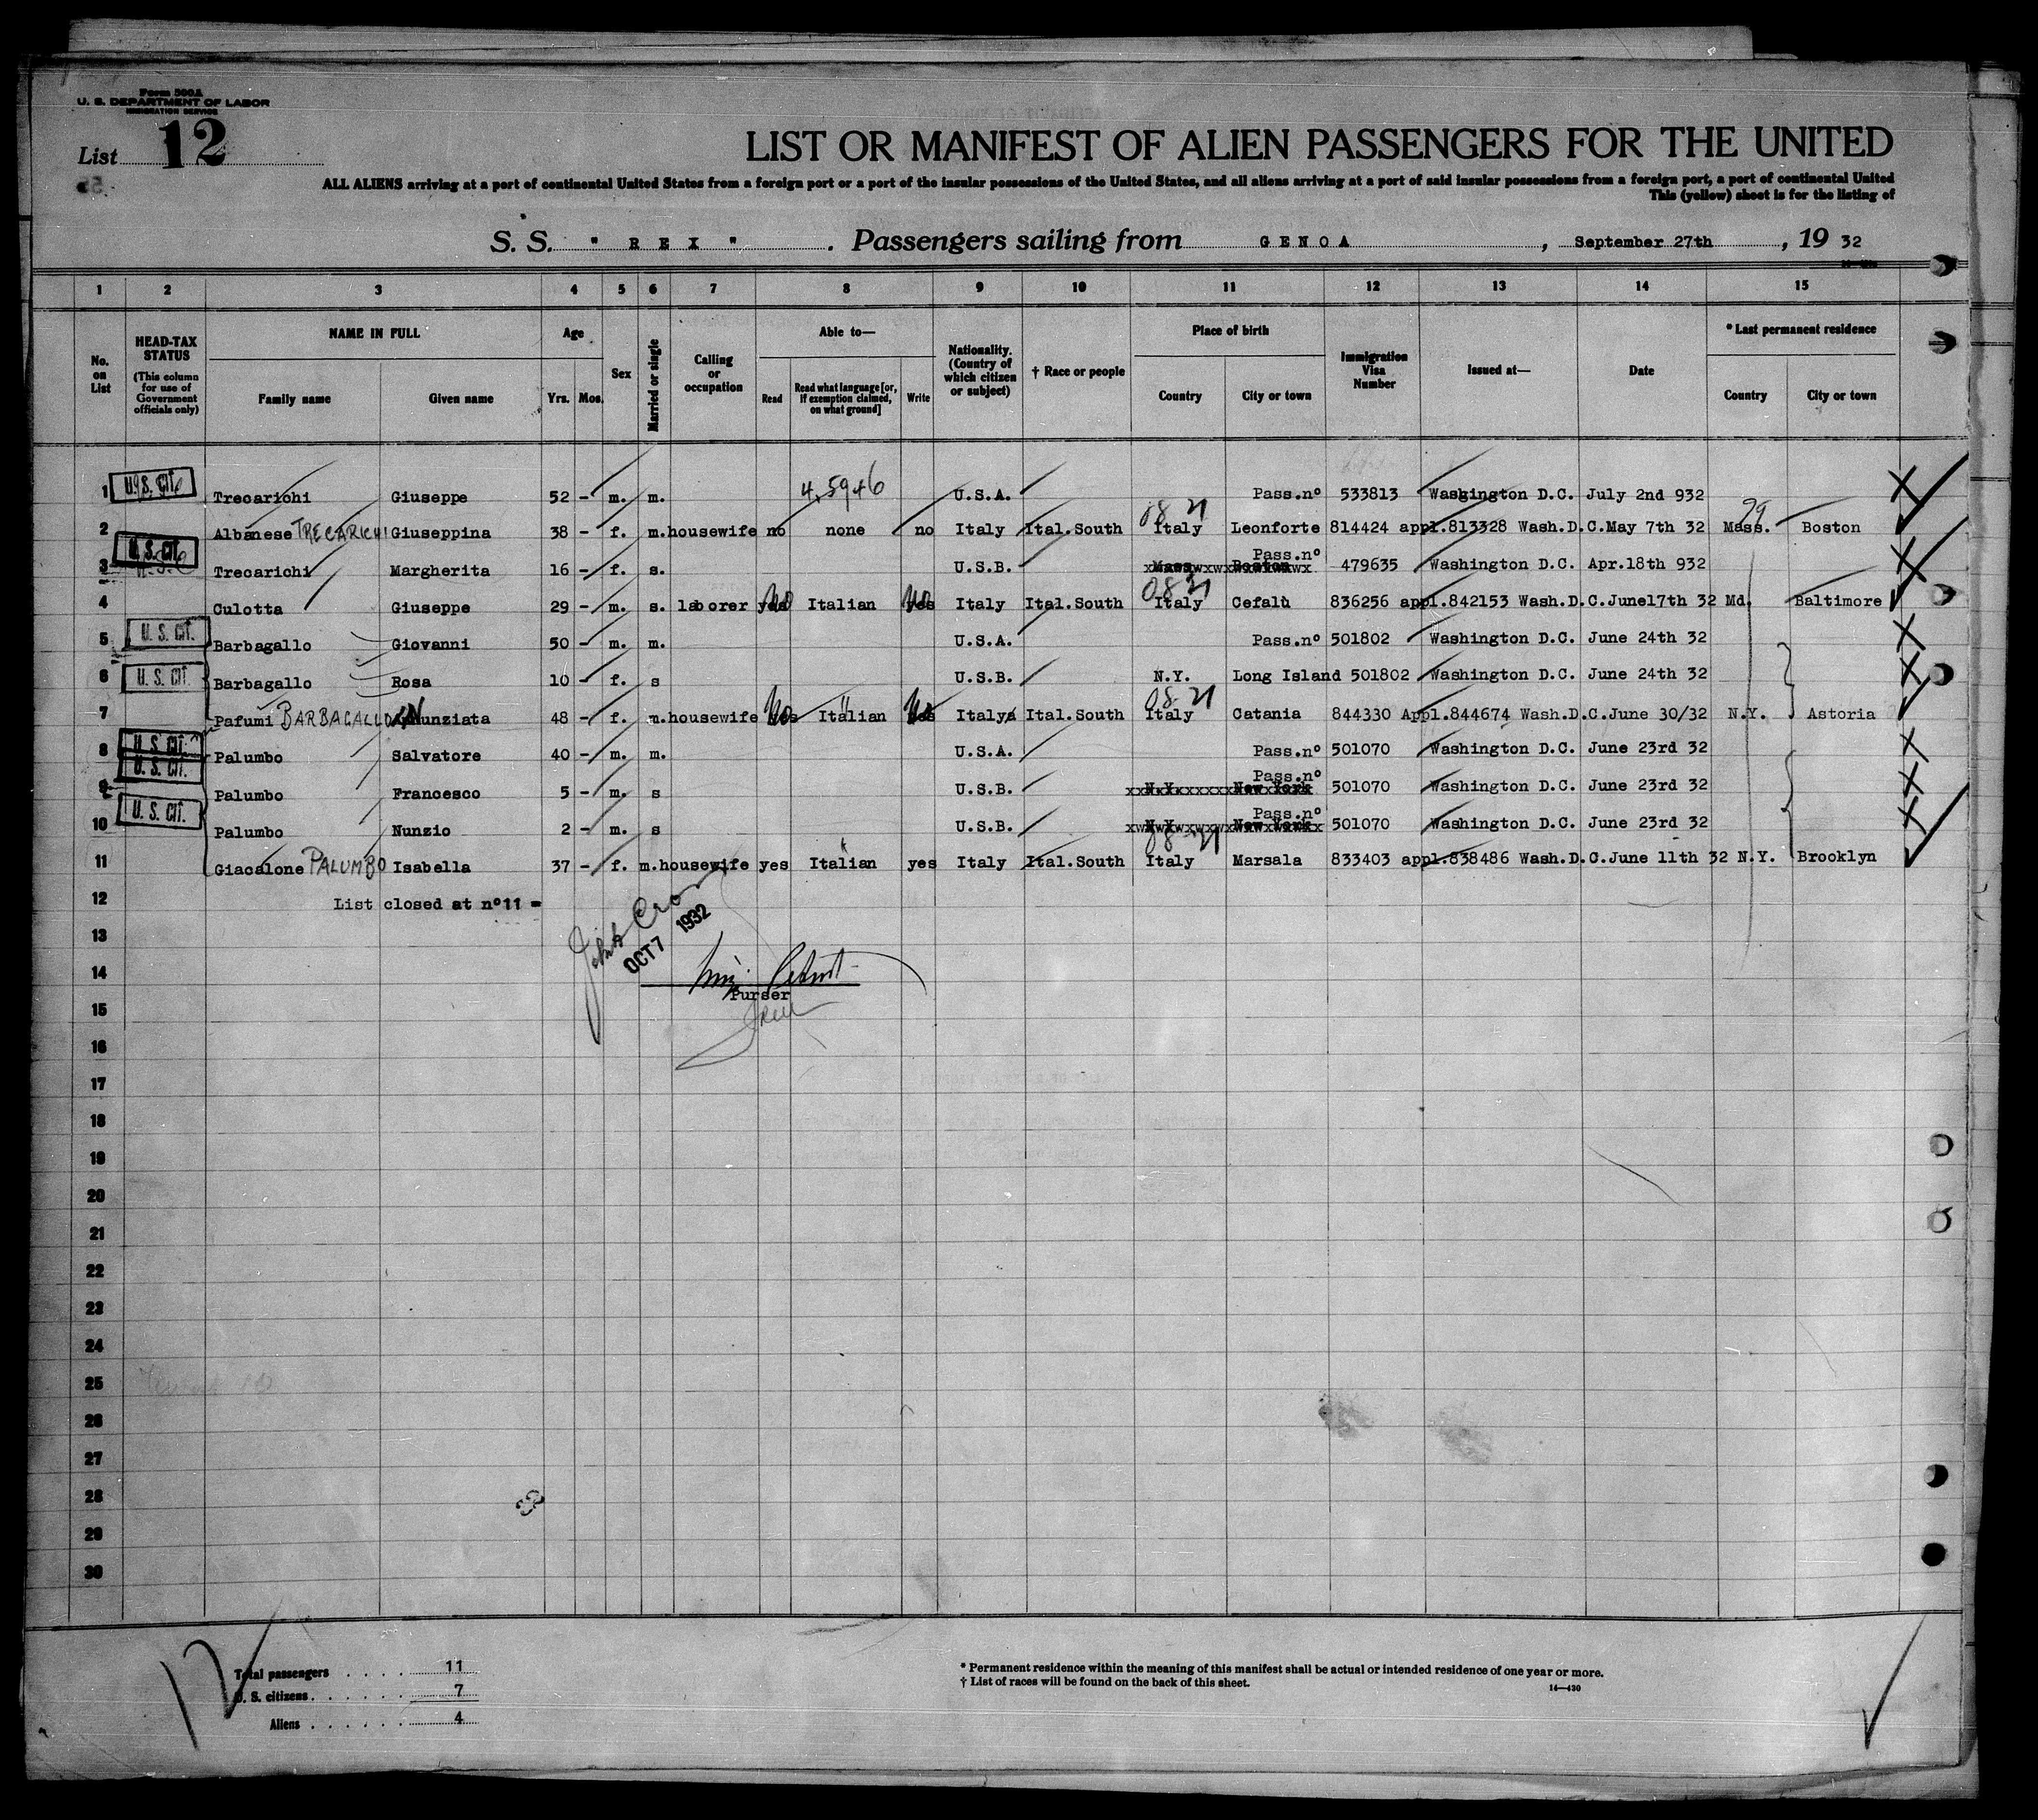 Form 500A
U. S. DEPARTMENT OF LABOR
IMMIGRATION SERVICE
List 12
LIST OR MANIFEST OF ALIEN PASSENGERS FOR THE UNITED
ALL ALIENS arriving at a port of continental United States from a foreign port or a port of the insular possessions of the United States, and all aliens arriving at a port of said insular possessions from a foreign port, a port of continental United
This (yellow) sheet is for the listing of
S. S. " R E X " . Passengers sailing from G E N O A , September 27th , 19 32
1 2 3 4 5 6 7 8 9 10 11 12 13 14 15
No. on List
HEAD-TAX STATUS (This column for use of Government officials only)
NAME IN FULL Family name Given name
Age Yrs. Mos.
Sex
Married or single
Calling or occupation
Able to— Read Read what language [or, if exemption claimed, on what ground] Write
Nationality. (Country of which citizen or subject)
† Race or people
Place of birth Country City or town
Immigration Visa Number
Issued at—
Date
* Last permanent residence Country City or town
1 U.S. CIT. Trecarichi Giuseppe 52 - m. m. 4,5946 U.S.A. Pass.nº 533813 Washington D.C. July 2nd 932
2 Albanese TRECARICHI Giuseppina 38 - f. m. housewife no none no Italy Ital.South Italy Leonforte 814424 appl.813328 Wash.D.C. May 7th 32 Mass. Boston
3 U.S. CIT. Trecarichi Margherita 16 - f. s. U.S.B. Mass Boston Pass.nº 479635 Washington D.C. Apr.18th 932
4 Culotta Giuseppe 29 - m. s. laborer yes No Italian yes No Italy Ital.South Italy Cefalù 836256 appl.842153 Wash.D.C. June17th 32 Md. Baltimore
5 U. S. CIT. Barbagallo Giovanni 50 - m. m. U.S.A. Pass.nº 501802 Washington D.C. June 24th 32
6 U. S. CIT. Barbagallo Rosa 10 - f. s U.S.B. N.Y. Long Island 501802 Washington D.C. June 24th 32
7 Pafumi BARBAGALLO Nunziata 48 - f. m. housewife yes No Italian yes No Italy Ital.South Italy Catania 844330 Appl.844674 Wash.D.C. June 30/32 N.Y. Astoria
8 U. S. CIT. Palumbo Salvatore 40 - m. m. U.S.A. Pass.nº 501070 Washington D.C. June 23rd 32
9 U. S. CIT. Palumbo Francesco 5 - m. s U.S.B. N.Y. New York Pass.nº 501070 Washington D.C. June 23rd 32
10 U. S. CIT. Palumbo Nunzio 2 - m. s U.S.B. N.Y. New York Pass.nº 501070 Washington D.C. June 23rd 32
11 Giacalone PALUMBO Isabella 37 - f. m. housewife yes Italian yes Italy Ital.South Italy Marsala 833403 appl.838486 Wash.D.C. June 11th 32 N.Y. Brooklyn
12 List closed at nº11 =
13
OCT 7 1932
14
Purser
15
16
17
18
19
20
21
22
23
24
25
26
27
28
29
30
Total passengers . . . . . 11
U. S. citizens . . . . . . 7
Aliens . . . . . . 4
* Permanent residence within the meaning of this manifest shall be actual or intended residence of one year or more.
† List of races will be found on the back of this sheet.
14—430